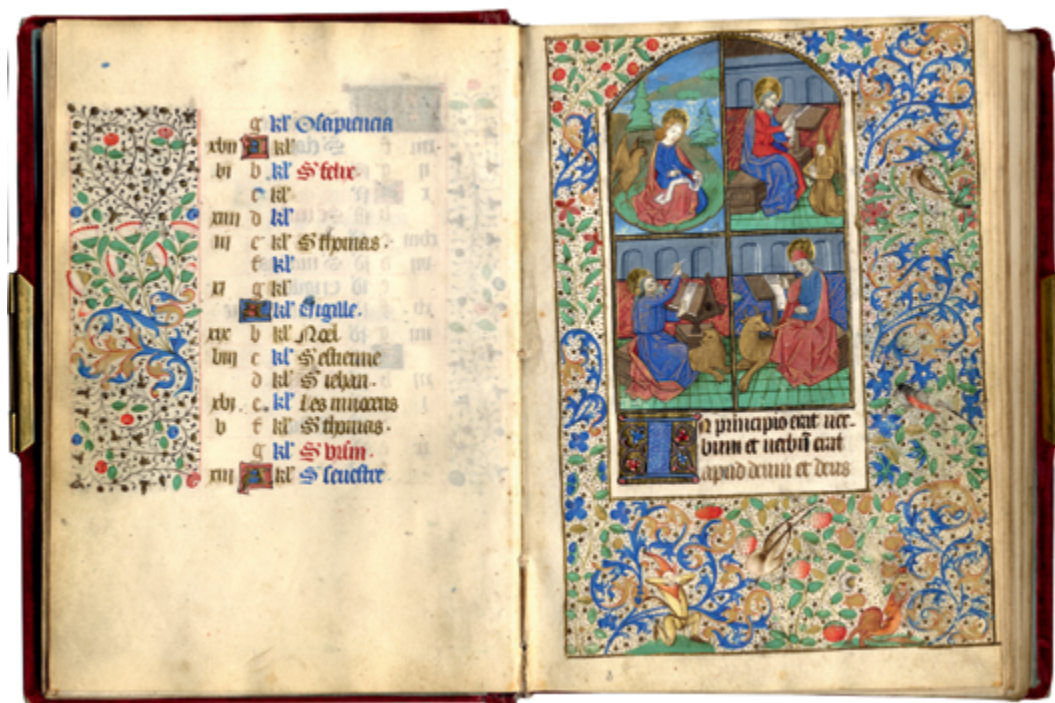 g kl' Osapiencia
xviij A kl'
vi b kl' S felix.
c kl'
xiiii d kl'
iij e kl' S thomas.
f kl'
xi g kl'
A kl' Vigille.
xix b kl' Noel
viij c kl' S estienne
d kl' S iehan.
xvi e kl' Les innocens
v f kl' S thomas.
g kl' S
xiij A kl' S seuestre
In principio erat uer-
bum et uerbū erat
apud deum et deus